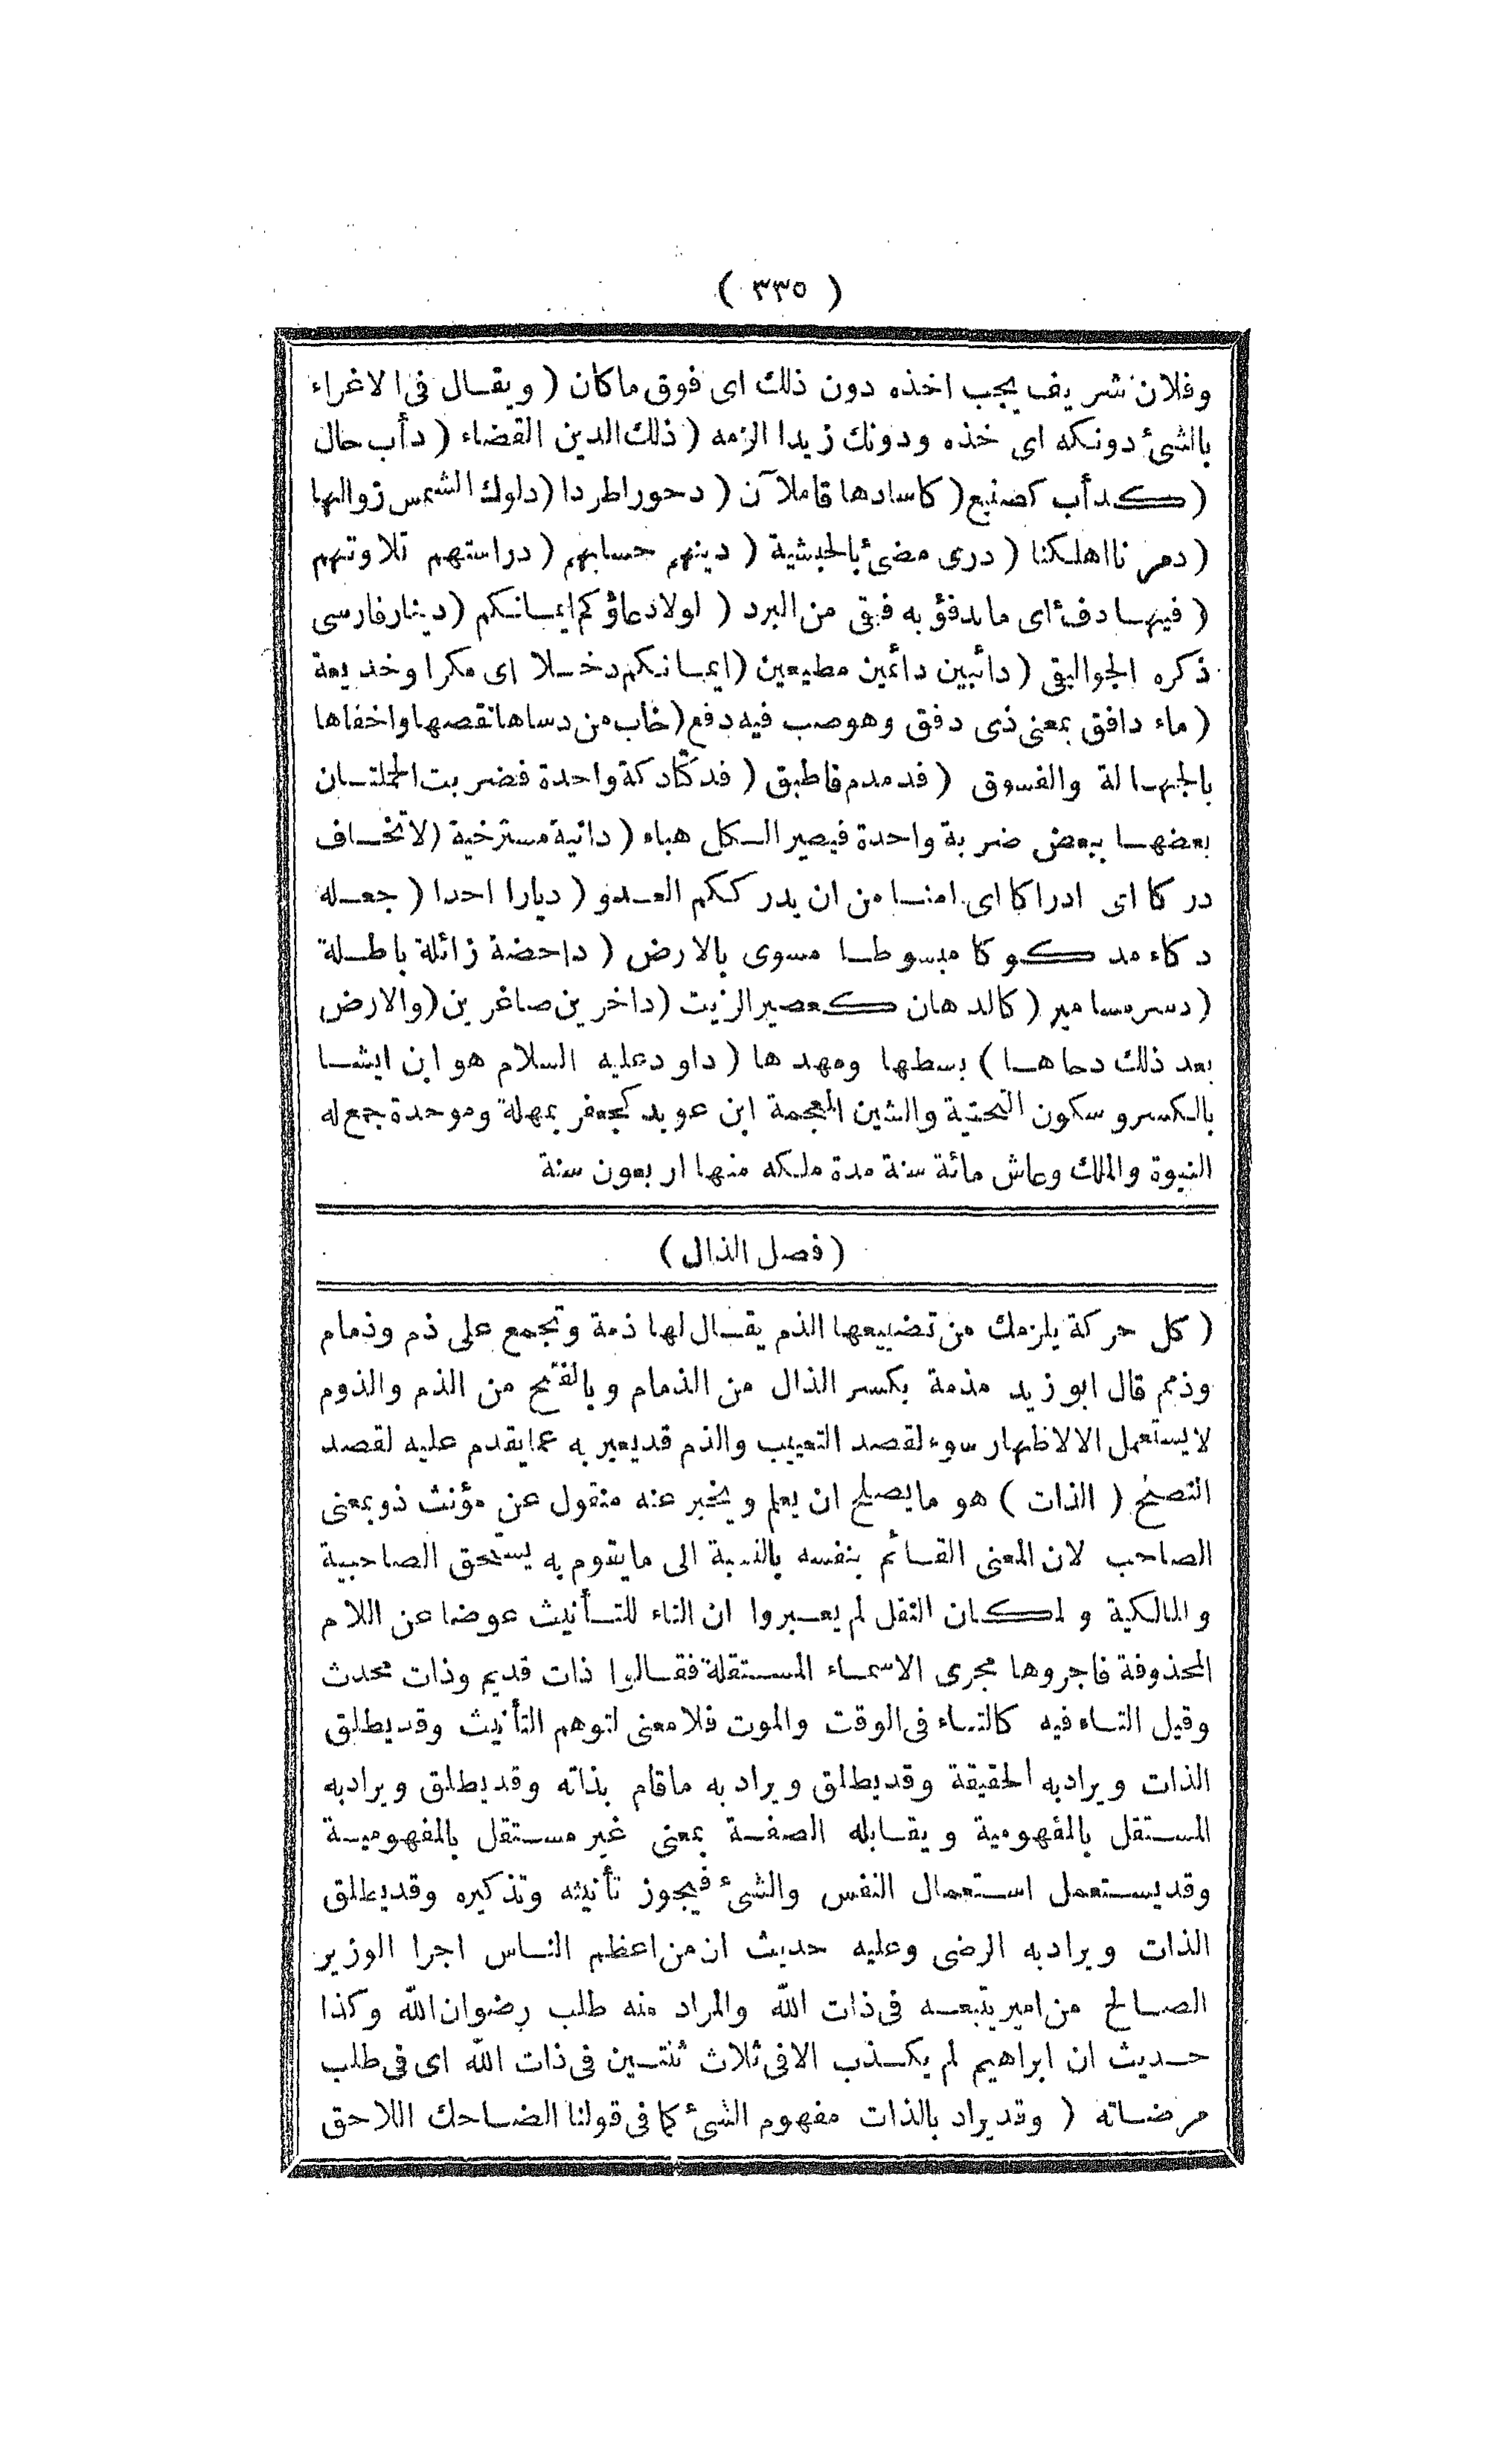 ( ٣٣٥ )
وفلان شريف يجب اخذه دون ذلك اى فوق ماكان ( ويقال فى الاغراء
بالشئ دونكه اى خذه ودونك زيدا الزمه ( ذلك الدين القضاء ( دأب حال
( كدأب كصنيع ( كاسادها قاملآن ( دحورا طردا ( دلوك الشمس زوالها
( دمرنا اهلكنا ( درى مضئ بالحبشية ( دينهم حسابهم ( دراستهم تلاوتهم
( فيها دفء اى مايدفؤ به فيقى من البرد ( لولا دعاؤكم ايمانكم ( دينار فارسى
ذكره الجواليقى ( دائبين دائمين مطيعين ( ايمانكم دخلا اى مكرا وخديعة
( ماء دافق بمعنى ذى دفق وهو صب فيه دفع ( خاب من دساها نقصها واخفاها
بالجهالة والفسوق ( فدمدم فاطبق ( فدكتا دكة واحدة فضربت الجملتان
بعضها ببعض ضربة واحدة فيصير الكل هباء ( دانية مسترخية ( لاتخاف
دركا اى ادراكا اى امنا من ان يدرككم العدو ( ديارا احدا ( جعله
دكاء مدكوكا مبسوطا مسوى بالارض ( داحضة زائلة باطلة
( دسر مسامير ( كالدهان كعصير الزيت ( داخرين صاغرين ( والارض
بعد ذلك دحاها ) بسطها ومهدها ( داود عليه السلام هو ابن ايشا
بالكسر وسكون التحتية والشين المعجمة ابن عوبد كجعفر بمهلة وموحدة جمع له
النبوة والملك وعاش مائة سنة مدة ملكه منها اربعون سنة
( فصل الذال )
( كل حركة يلزمك من تضييعها الذم يقال لها ذمة وتجمع على ذم وذمام
وذمم قال ابو زيد مذمة بكسر الذال من الذمام وبالفتح من الذم والذوم
لايستعمل الا لاظهار سوء لقصد التعييب والذم قد يعبر به عما يقدم عليه لقصد
النصح ( الذات ) هو مايصلح ان يعلم ويخبر عنه منقول عن مؤنث ذو بمعنى
الصاحب لان المعنى القائم بنفسه بالنسبة الى مايقوم به يستحق الصاحبية
والمالكية ولمكان النقل لم يعبروا ان التاء للتأنيث عوضا عن اللام
المحذوفة فاجروها مجرى الاسماء المستقلة فقالوا ذات قديم وذات محدث
وقيل التاء فيه كالتاء فى الوقت والموت فلا معنى لتوهم التأنيث وقد يطلق
الذات ويراد به الحقيقة وقد يطلق ويراد به ماقام بذاته وقد يطلق ويراد به
المستقل بالمفهومية ويقابله الصفة بمعنى غير مستقل بالمفهومية
وقد يستعمل استعمال النفس والشئ فيجوز تأنيثه وتذكيره وقد يطلق
الذات ويراد به الرضى وعليه حديث ان من اعظم الناس اجرا الوزير
الصالح من امير يتبعه فى ذات الله والمراد منه طلب رضوان الله وكذا
حديث ان ابراهيم لم يكذب الا فى ثلاث ثنتين فى ذات الله اى فى طلب
مرضاته ( وقد يراد بالذات مفهوم الشئ كما فى قولنا الضاحك اللاحق